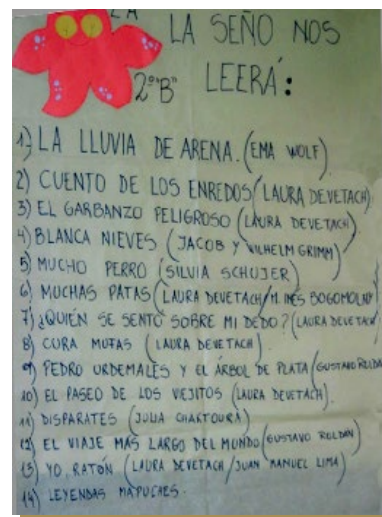 2A LA SEÑO NOS
2º"B" LEERÁ:
1) LA LLUVIA DE ARENA. (EMA WOLF)
2) CUENTO DE LOS ENREDOS (LAURA DEVETACH)
3) EL GARBANZO PELIGROSO (LAURA DEVETACH)
4) BLANCA NIEVES (JACOB Y WILHELM GRIMM)
5) MUCHO PERRO (SILVIA SCHUJER)
6) MUCHAS PATAS (LAURA DEVETACH/M. INÉS BOGOMOLNY)
7) ¿QUIÉN SE SENTÓ SOBRE MI DEDO? (LAURA DEVETACH)
8) CURA MUFAS (LAURA DEVETACH)
9) PEDRO URDEMALES Y EL ÁRBOL DE PLATA (GUSTAVO ROLDA
10) EL PASEO DE LOS VIEJITOS (LAURA DEVETACH).
11) DISPARATES (JULIA CHAKTOURA)
12) EL VIAJE MÁS LARGO DEL MUNDO (GUSTAVO ROLDÁN)
13) YO, RATÓN (LAURA DEVETACH/JUAN MANUEL LIMA)
14) LEYENDAS MAPUCHES.